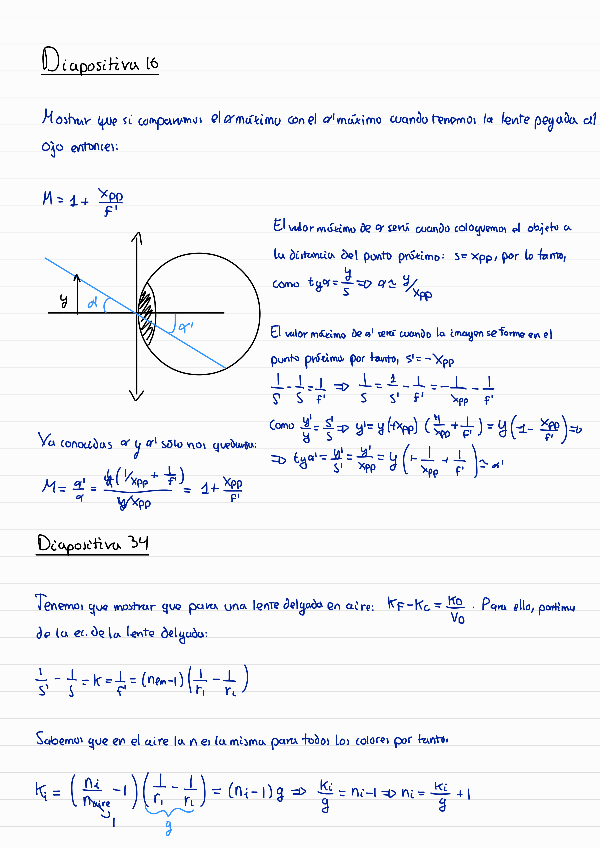 Diapositiva 16
Mostrar que si comparamos el α máximo con el α' máximo cuando tenemos la lente pegada al
ojo entonces:
M = 1 + xpp/f'
El valor máximo de α será cuando coloquemos el objeto a
la distancia del punto próximo: s = xpp, por lo tanto,
como tg α = y/s ⇒ α ≃ y/xpp
y α α'
El valor máximo de α' será cuando la imagen se forme en el
punto próximo por tanto, s' = -xpp
1/s' - 1/s = 1/f' ⇒ 1/s = 1/s' - 1/f' = -1/xpp - 1/f'
Como y'/y = s'/s ⇒ y' = y(+xpp)(1/xpp + 1/f') = y(1 - xpp/f') ⇒
⇒ tg α' = y'/s' = y'/xpp = y(+1/xpp + 1/f') ≃ α'
Ya conocidas α y α' sólo nos quedaría:
M = α'/α = y(1/xpp + 1/f')/(y/xpp) = 1 + xpp/f'
Diapositiva 34
Tenemos que mostrar que para una lente delgada en aire: KF - KC = KD/VD . Para ello, partimos
de la ec. de la lente delgada:
1/s' - 1/s = K = 1/f' = (nen-1)(1/r1 - 1/r2)
Sabemos que en el aire la n es la misma para todos los colores por tanto:
Ki = (ni/naire - 1)(1/r1 - 1/r2) = (ni - 1)g ⇒ Ki/g = ni - 1 ⇒ ni = Ki/g + 1
1 g